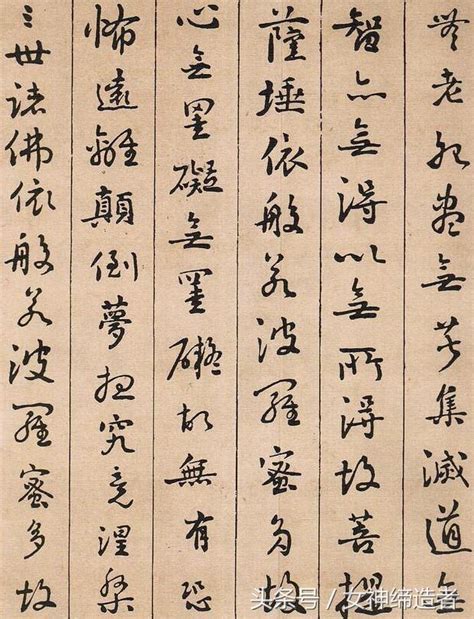 無老死盡無苦集滅道無
智亦無得以無所得故菩提
薩埵依般若波羅蜜多故
心無罣礙無罣礙故無有恐
怖遠離顛倒夢想究竟涅槃
三世諸佛依般若波羅蜜多故
头条号 / 女神缔造者